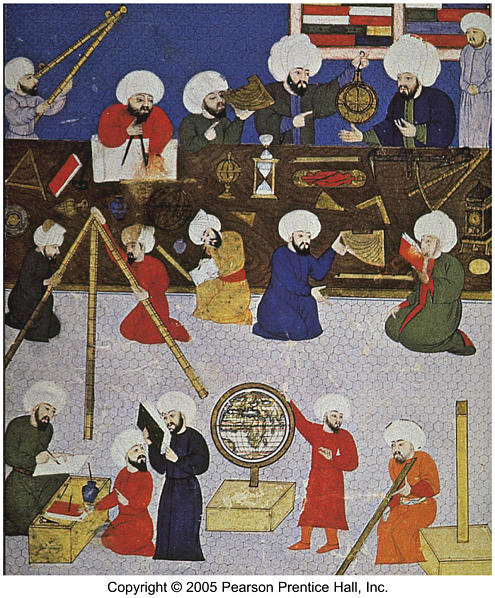 Copyright © 2005 Pearson Prentice Hall, Inc.